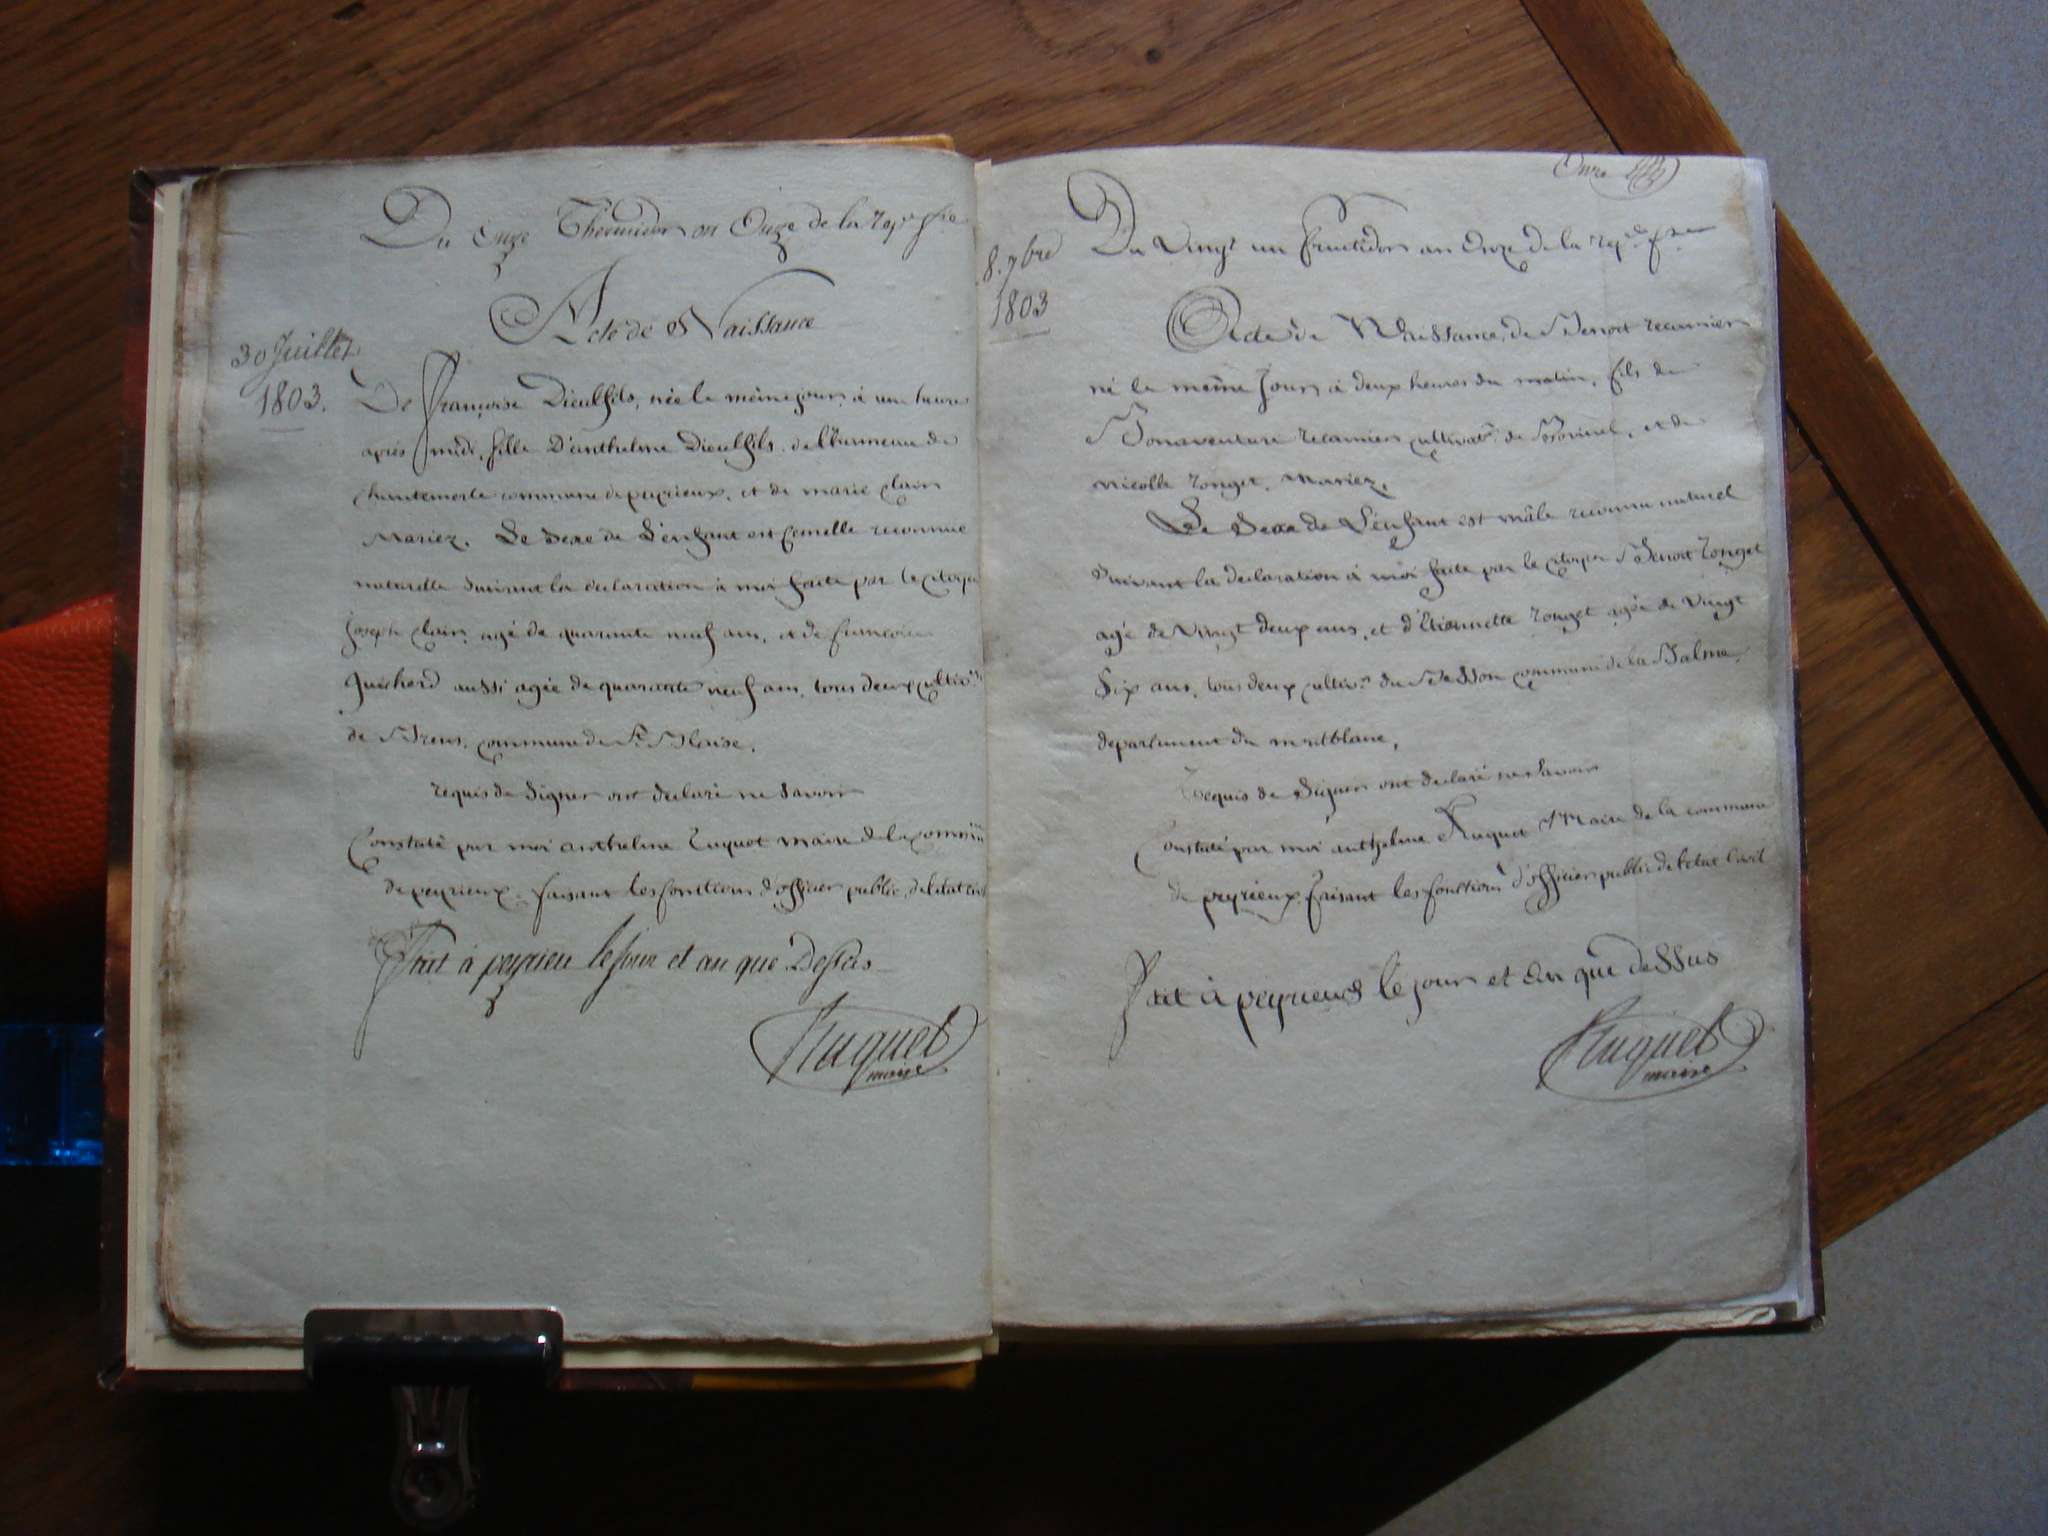 Du onze Thermidor an Onze de la rep. fse
Acte de Naissance
30 Juillet
1803.
De françoise Dieulfils, née le même jour, à une heure
après midi, fille D'anthelme Dieulfils de l'hameau de
commune de peyrieux, et de marie clain
Mariez. Le Sexe de L'enfant est femelle reconnue
naturelle Suivant la declaration à moi faite par le citoyen
joseph clain, agé de quarante neuf ans, et de francoise
Guicherd aussi agée de quarante neuf ans, tous deux cultivrs
de Brens, commune de St. Blaise.
requis de Signer ont declaré ne Savoir
Constaté par moi anthelme ruquet maire de la commune
de peyrieux faisant les fonctions d'officier public de l'etat civil
Fait à peyrieu le jour et an que Dessus
Ruquet
maire
Onze
8. 7bre
1803
Du Vingt un fructidor an Onze de la rep. fse
Acte de Naissance, de Benoit recamier
né le même Jour à deux heures du matin, fils de
Bonaventure recamier cultivatr. de et de
nicolle ronget, Mariez,
Le Sexe de L'enfant est mâle reconnu naturel
Suivant la declaration à moi faite par le citoyen Benoit ronget
agé de Vingt deux ans, et d'Etiennette ronget agée de Vingt
Six ans, tous deux cultivrs du commune de la Balme,
departement du montblanc,
requis de Signer ont declaré ne Savoir
Constaté par moi anthelme Ruquet Maire de la commune
de peyrieux faisant les fonctions d'officier public de l'etat Civil
Fait à peyrieux le jour et an que dessus
Ruquet
maire